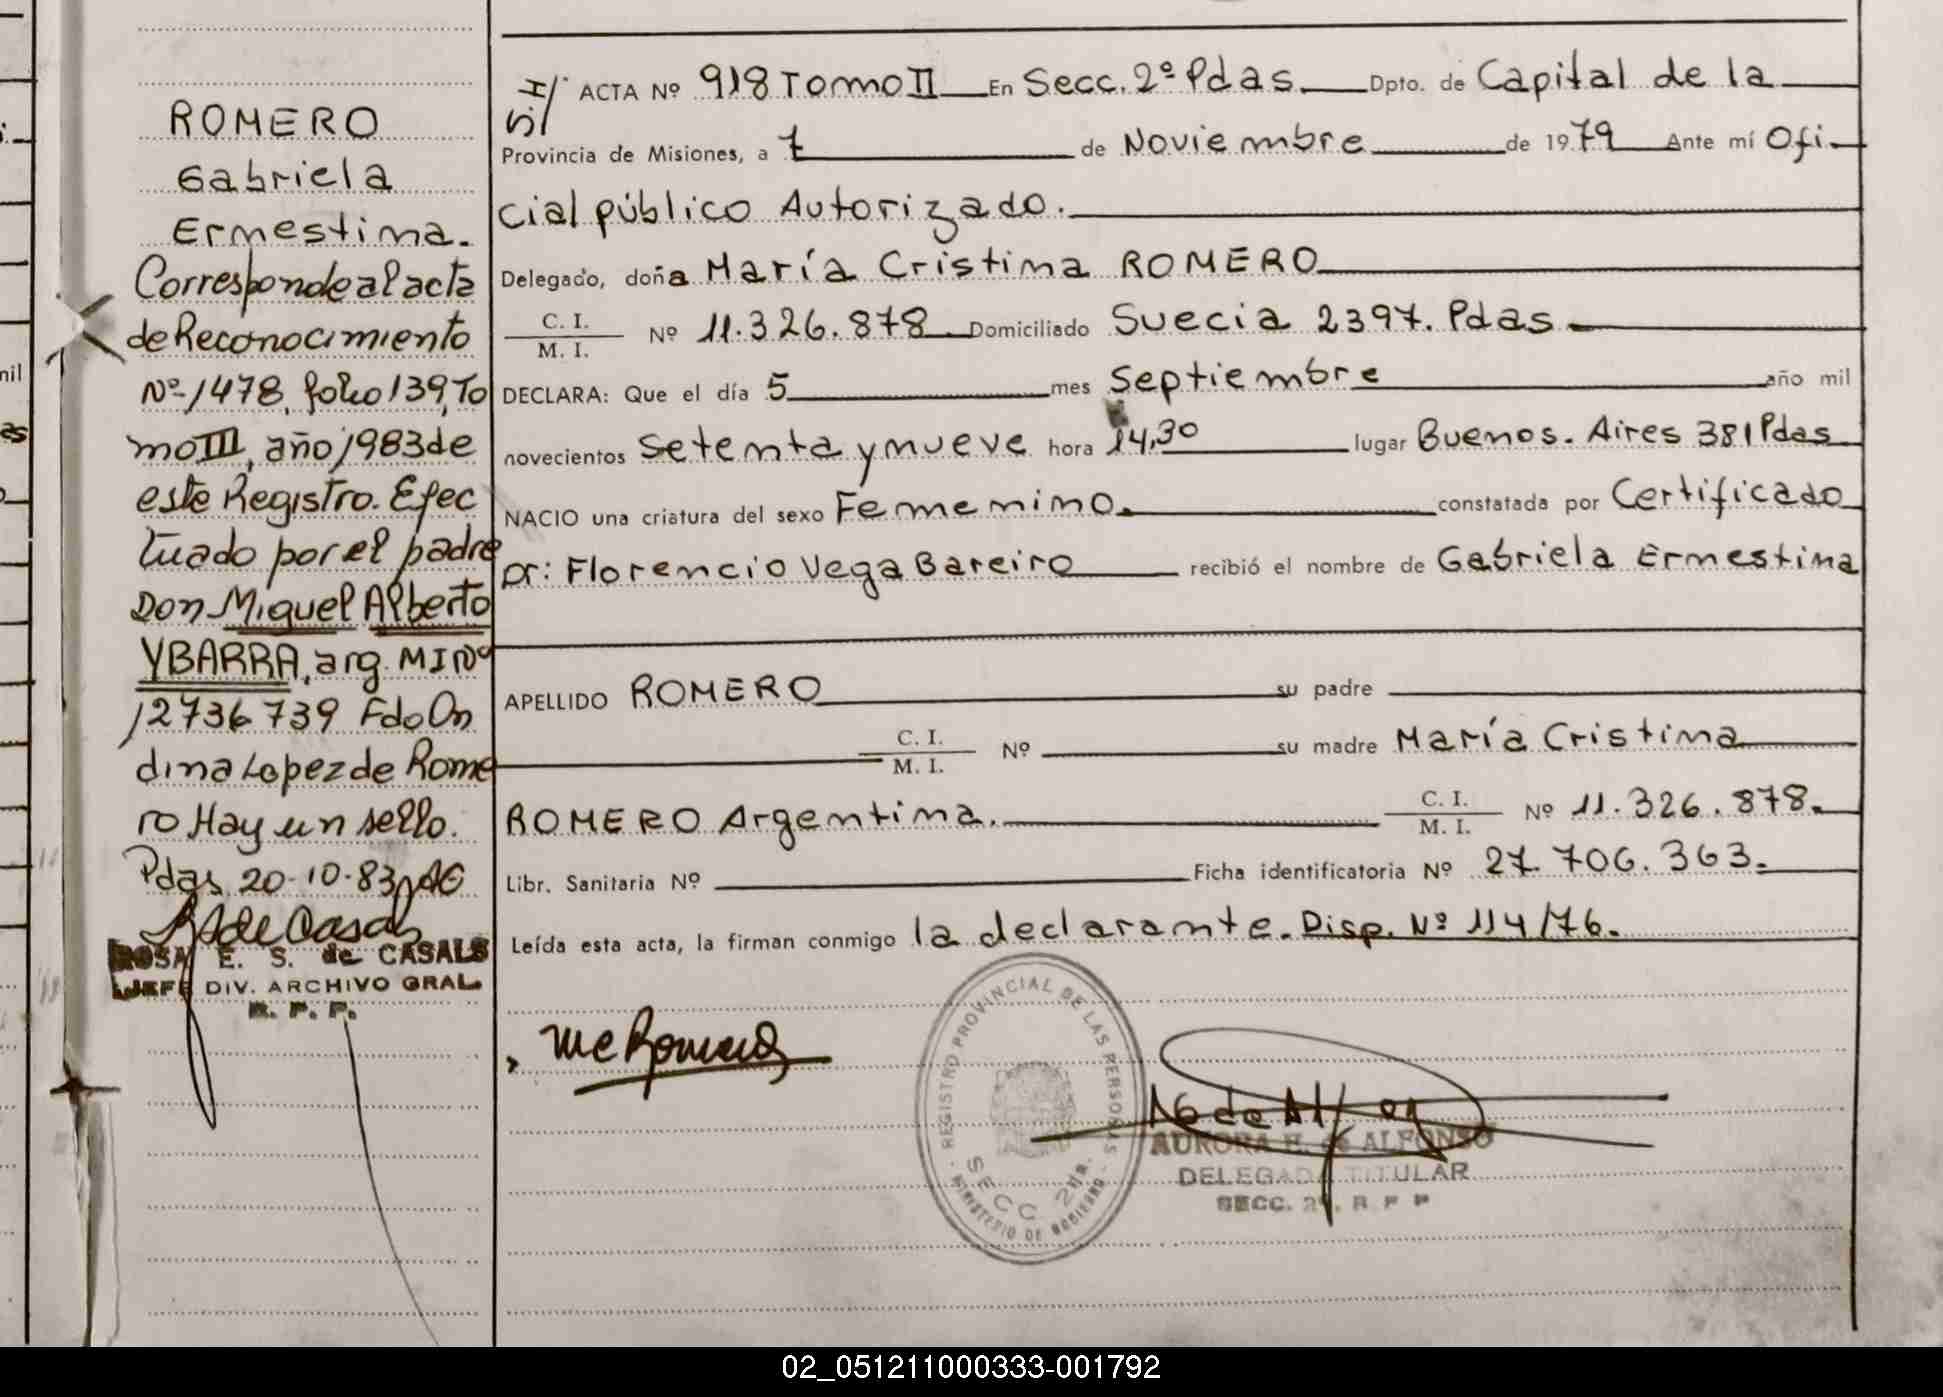 ROMERO
Gabriela
Ernestina.
Corresponde al acta
de Reconocimiento
Nº 1478, folio 139, To
mo III, año 1983 de
este Registro. Efec
tuado por el padre
Don Miguel Alberto
YBARRA, arg. MI Nº
12736739 Fdo On
dina Lopez de Rome
ro Hay un sello.
Pdas 20-10-83
ROSA E. S. de CASALS
JEFE DIV. ARCHIVO GRAL.
R. P. P.
ACTA Nº 918 Tomo II En Secc. 2º Pdas. Dpto. de Capital de la
Provincia de Misiones, a 7 de Noviembre de 1979 Ante mí Ofi-
cial público Autorizado.
Delegado, doña María Cristina ROMERO
C. I.
M. I. Nº 11.326.878 Domiciliado Suecia 2397. Pdas
DECLARA: Que el día 5 mes Septiembre año mil
novecientos setenta y nueve hora 14,30 lugar Buenos. Aires 381 Pdas
NACIO una criatura del sexo Femenino. constatada por Certificado
Dr: Florencio Vega Bareiro recibió el nombre de Gabriela Ernestina
APELLIDO ROMERO su padre
C. I.
M. I. Nº su madre María Cristina
ROMERO Argentina. C. I.
M. I. Nº 11.326.878.
Libr. Sanitaria Nº Ficha identificatoria Nº 27.706.363.
Leída esta acta, la firman conmigo la declarante. Disp. Nº 114/76.
mc Romero
REGISTRO PROVINCIAL DE LAS PERSONAS
SECC 2da.
MINISTERIO DE GOBIERNO
AURORA H. de ALFONSO
DELEGADA TITULAR
SECC. 2ª. R P P
02_051211000333-001792